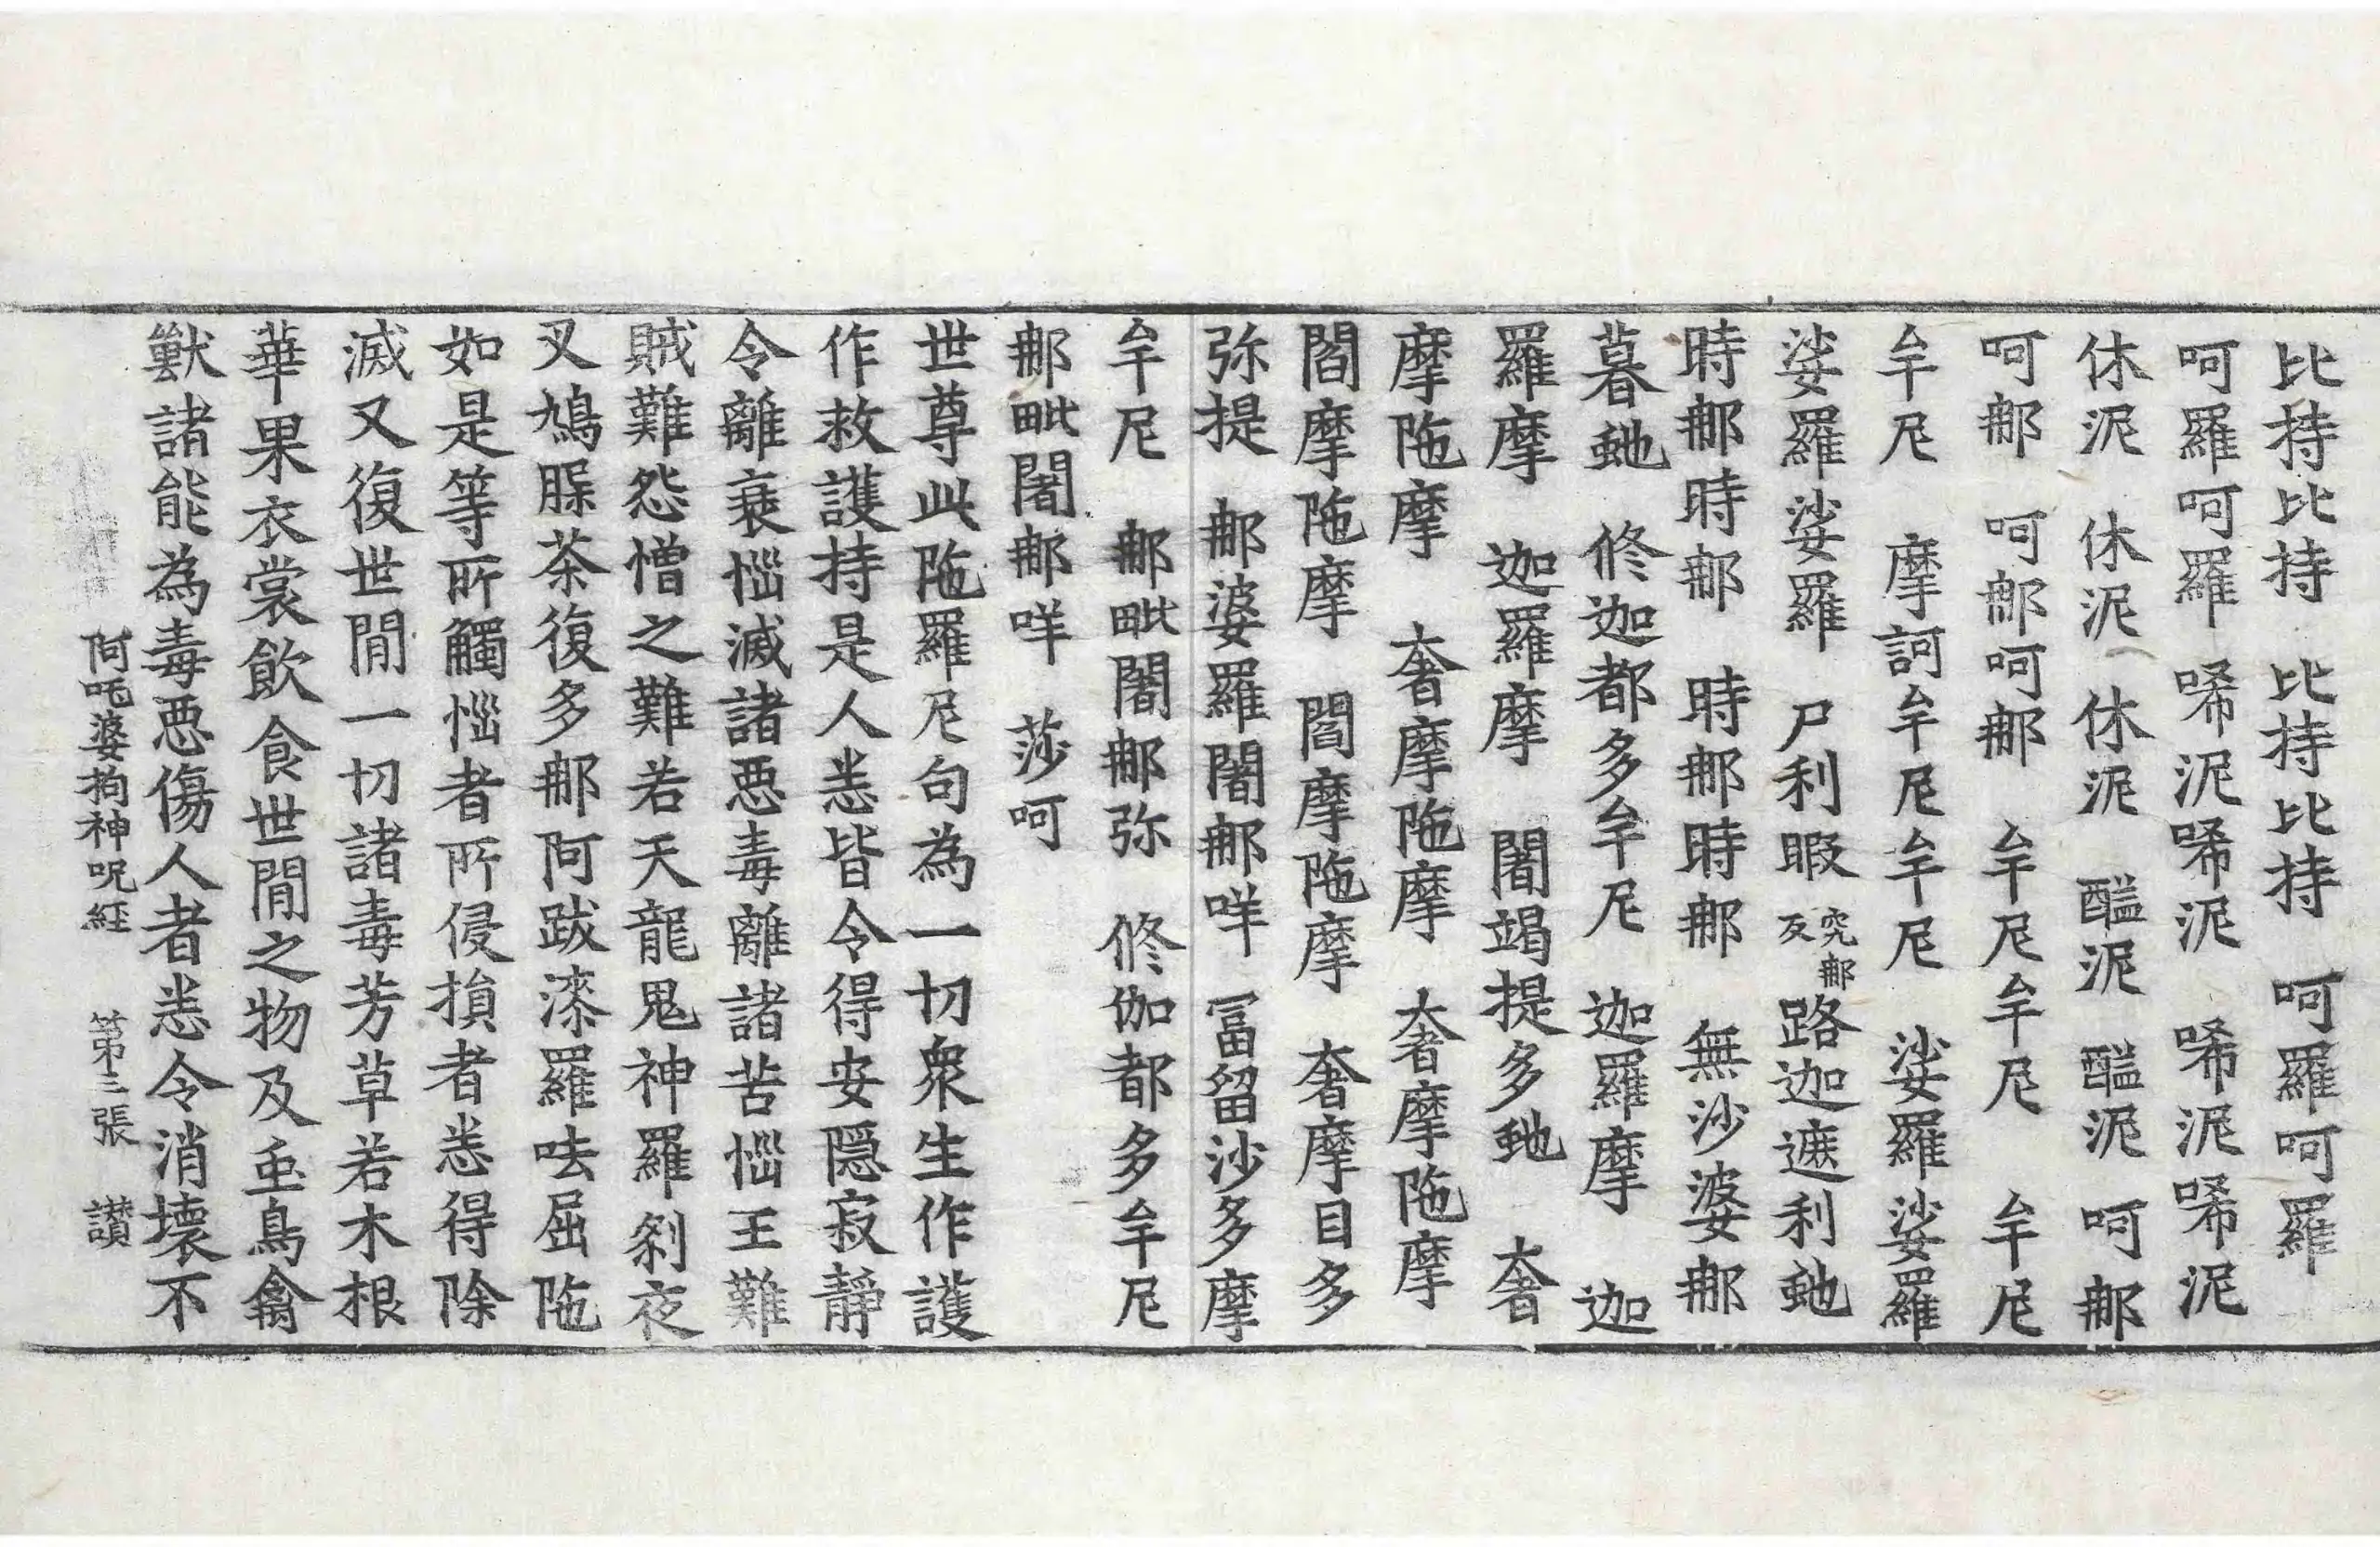 比持比持　比持比持　呵羅呵羅
呵羅呵羅　唏泥唏泥　唏泥唏泥
休泥　休泥　休泥　醯泥　醯泥　呵那
呵那　呵那呵那　牟尼牟尼　牟尼
牟尼　摩訶牟尼牟尼　娑羅娑羅
娑羅娑羅　尸利暇究那反路迦遮利虵
時那時那　時那時那　無沙婆那
暮虵　修迦都多牟尼　迦羅摩　迦
羅摩　迦羅摩　闍竭提多虵　奢
摩陁摩　奢摩陁摩　奢摩陁摩
閻摩陁摩　閻摩陁摩　奢摩目多
弥提　那婆羅闍那咩　冨留沙多摩
牟尼　那毗闍那弥　修伽都多牟尼
那毗闍那咩　莎呵
世尊此陁羅尼句為一切衆生作護
作救護持是人悉皆令得安隱寂靜
令離衰惱滅諸惡毒離諸苦惱王難
賊難怨憎之難若天龍鬼神羅剎夜
叉鳩脲茶復多那阿跋漆羅呿屈陁
如是等所觸惱者所侵損者悉得除
滅又復世閒一切諸毒芳草若木根
華果衣裳飲食世閒之物及虫鳥禽
獸諸能為毒惡傷人者悉令消壞不
阿吒婆拘神呪經　第三張　讃